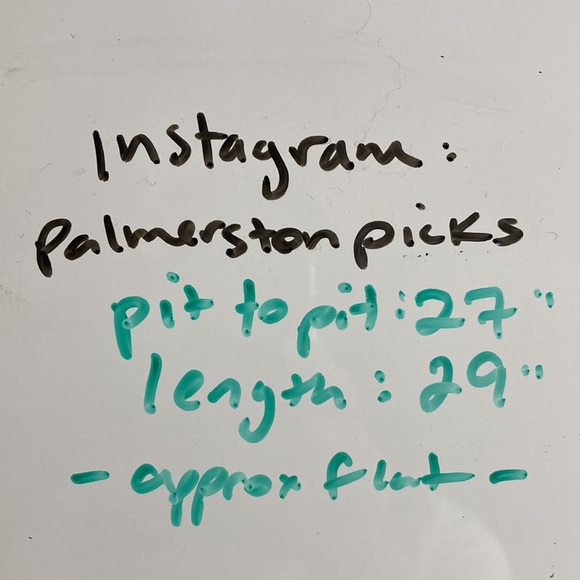 Instagram:
palmerston picks
pit to pit: 27"
length: 29"
- approx flat -